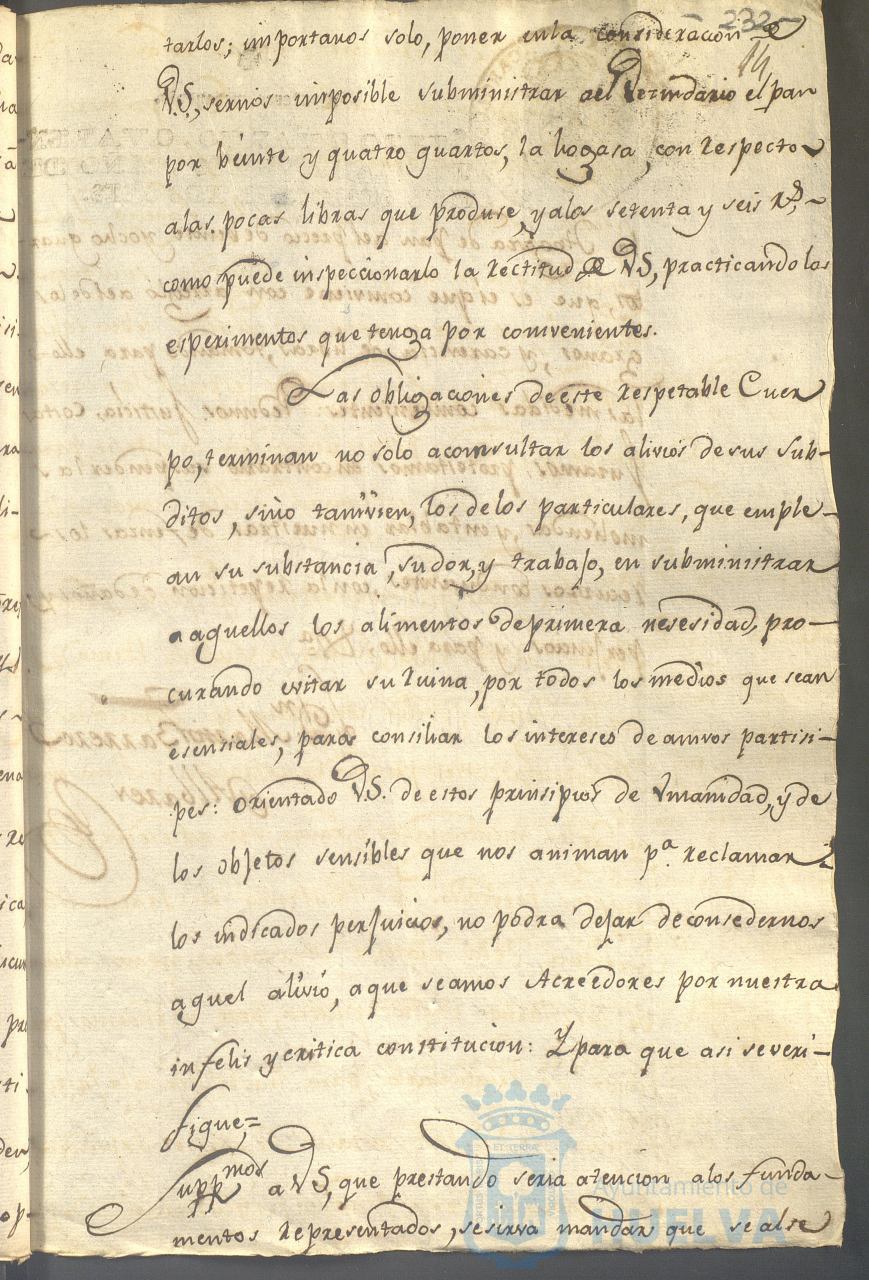 - 232 -
14
tarlos; importanos solo, poner en la consideracion de
VS., sernos imposible subministrar ael Vezindario el pan
por veinte y quatro quartos, la hogasa, con respecto
alas pocas libras que produse, y alos setenta y seis rs,
como puede inspeccionarlo la Rectitud de VS, practicando los
esperimentos que tenga por comvenientes.
Las obligaciones de este Respetable Cuer
po, terminan no solo aconsultar los alivios de sus Sub-
ditos, sino tanvien, los delos particulares, que emple-
an su substancia, sudor, y trabajo, en subministrar
a aquellos los alimentos de primera nesesidad, pro-
curando evitar su Ruina, por todos los medios que sean
esensiales, para consiliar los intereses de amvos partisi-
pes: Orientado VS. de estos prinsipios de Vmanidad, y de
los objetos sensibles que nos animan pa. reclamar
los indicados perjuicios, no podra dejar de consedernos
aquel alivio, a que seamos Acreedores por nuestra
infelis y critica constitucion: Y para que asi se veri-
fique=
Suppmos a VS, que prestando seria atencion alos funda-
mentos Representados, se sirva mandar que se alse
Ayuntamiento de
HUELVA